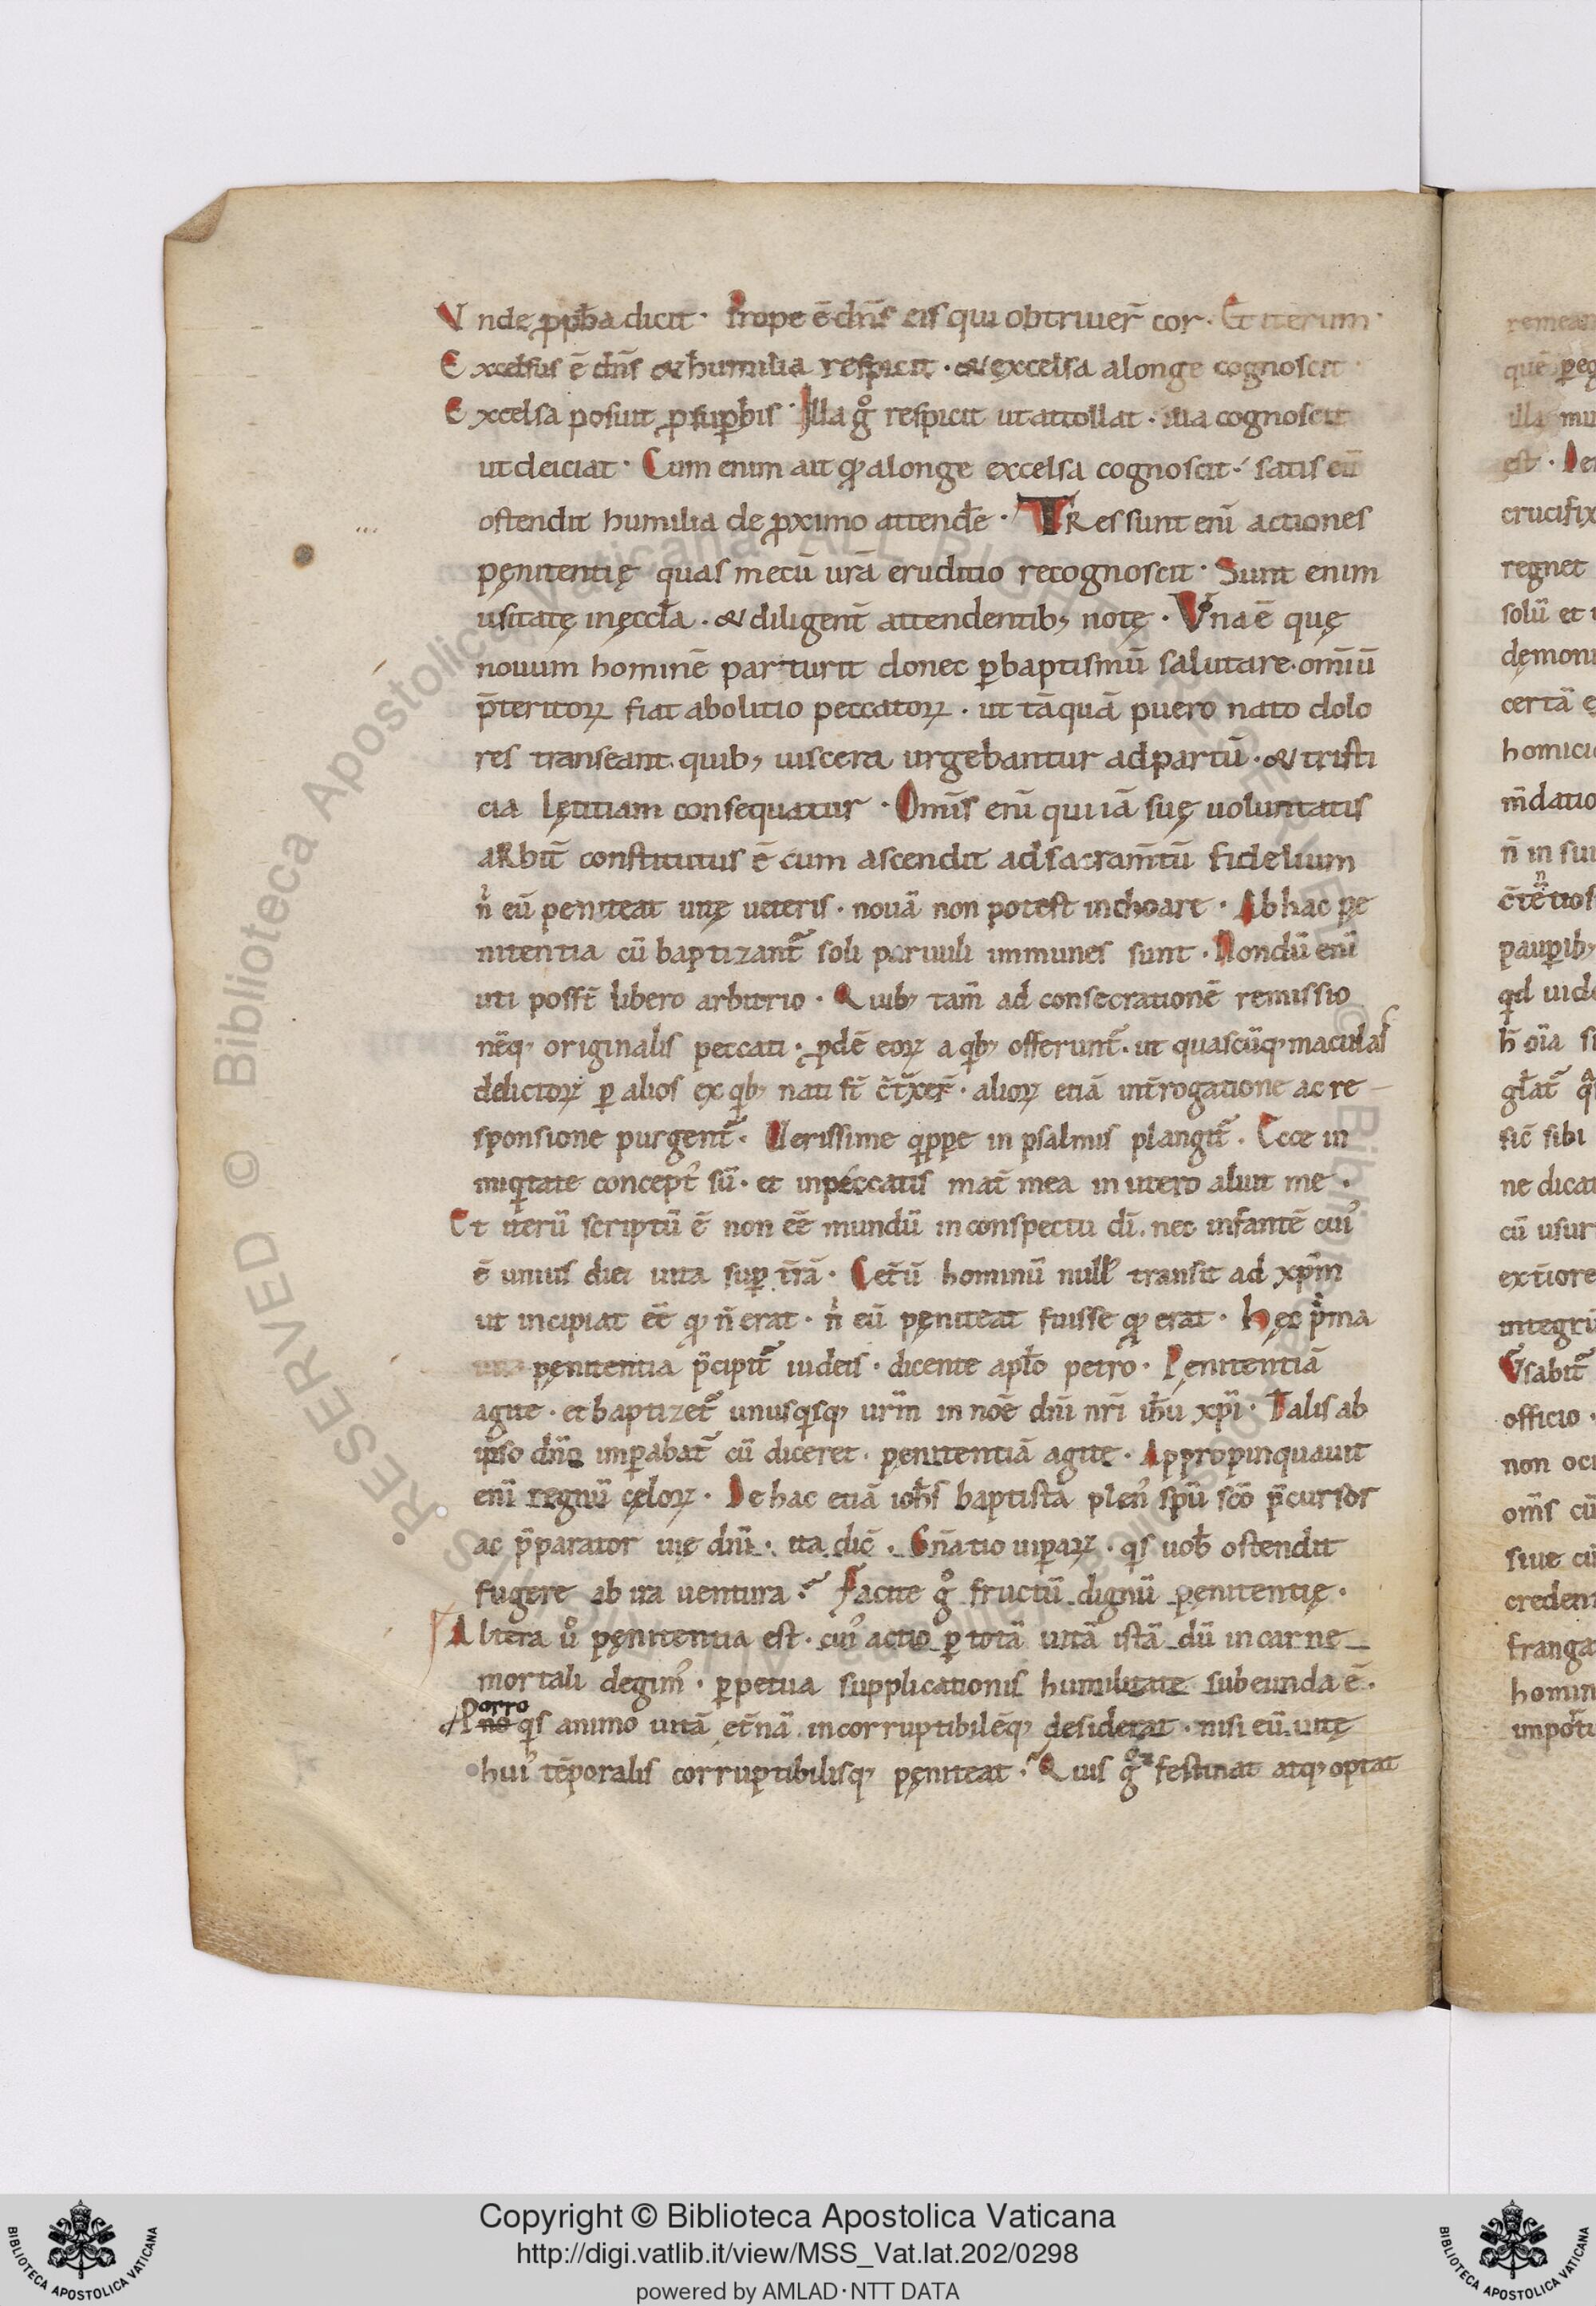 Vnde ꝓph̄a dicit · Prope ē dn̄s eis qui obtriuer̄ cor · Et iterum ·
Excelsus ē dn̄s & humilia respicit · & excelsa alonge cognoscit ·
Excelsa posuit ꝓ suꝑbis · Illa gͦ respicit ut attollat · ista cognoscit
ut deiciat · Cum enim ait qđ alonge excelsa cognoscit · satis eū
ostendit humilia de ꝓximo attendꝉe · TRes sunt eni̅ actiones
pęnitentię quas mecū ur̄a eruditio recognoscit · Sunt enim
usitatę in ęccl̄a · & diligent̄ attendentib; notę · Vna ē quę
nouum hominē parturit donec ꝑ baptismū salutare · omiū
p̄teritoꝝ fiat abolitio peccatoꝝ · ut tāquā puero nato dolo
res transeant quib; uiscera urgebantur ad partū · & tristi
cia lętitiam consequatur · Omīs eni̅ qui iā suę uoluntatis
aRbit̄ constitutus ē cum ascendit ad sacram̄tū fidelium
nͥ eū peniteat uitę ueteris · nouā non potest inchoare · Ab hac pę
nitentia cū baptizant̄ soli paruuli immunes sunt · Nondū eni̅
uti posst̄ libero arbitrio · Quib; tam̄ ad consecrationē remissio
nēq; originalis peccati · ꝓdē eoꝝ a qͥb; offerunt̄ · ut quascūq; maculas
delictoꝝ ꝑ alios ex qͥb; nati st̄ c̄t̄xer̄ · alioꝝ etiā int̄rogatione ac re
sponsione purgent̄ · Uerissime qͥppe in psalmis plangit̄ · Ecce in
iniqͥtate concept᾽ sū · et in peccatis mat̄ mea in utero aluit me ·
Et iterū scriptū ē non eē mundū in conspectu dī · nec infantē cui᾽
ē unius diei uita suꝑ t̄rā · Cet̄ū hominū null᾽ transit ad xp̄m
ut incipiat eē qđ n̄ erat · nͥ eū pęniteat fuisse qđ erat · Hęc pͥma
pęnitentia p̄cipit̄ iudeis · dicente apl̄o petro · Penitentiā
agite · et baptizet̄ unusqͥsq; ur̄m in noē dn̄i nr̄i ih̄u xp̄i · Talis ab
ip̄so dn̄o imꝑabat̄ cū diceret · penitentiā agite · Appropinquauit
eni̅ regnū cęloꝝ · De hac etiā ioh̄s baptista plen᾽ sp̄ū scō p̄cursor
ac p̄parator uię dn̄i · ita dic̄ · Gn̄atio uiꝑaꝝ · qͥs uob̄ ostendit
fugere ab ira uentura ? Facite gͦ fructū dignū penitentię ·
Altera uͦ pęnitentia est · cui᾽ actio ꝑ totā uitā istā dū in carne
mortali degim᾽ · ꝑpetua supplicationis humilitate subeunda ē ·
Porro
no qͥs animo uitā et̄nā incorruptibilēq; desiderat · nisi eū uitę
hui᾽ tēporalis corruptibilisq; pęniteat · Quis gͦ festinat atq; optat
remean
quē ꝑeg
illa mu
est · De
crucifix
regnet
solū et
dęmoni
certā
homici
m̄datio
n̄ in sui
pauꝑib;
qđ uid
h̄ oīa si
gl̄at̄
sic̄ sibi
ne dicat
cū usur
ext̄iore
integrū
Vsabit̄
officio ·
non oc
om̄s cū
siue cū
creden
franga
homin
impor̄tu
ALL RIGHTS RESERVED © Biblioteca Apostolica Vaticana
Copyright © Biblioteca Apostolica Vaticana
http://digi.vatlib.it/view/MSS_Vat.lat.202/0298
powered by AMLAD·NTT DATA
BIBLIOTECA APOSTOLICA VATICANA
BIBLIOTECA APOSTOLICA VATICANA